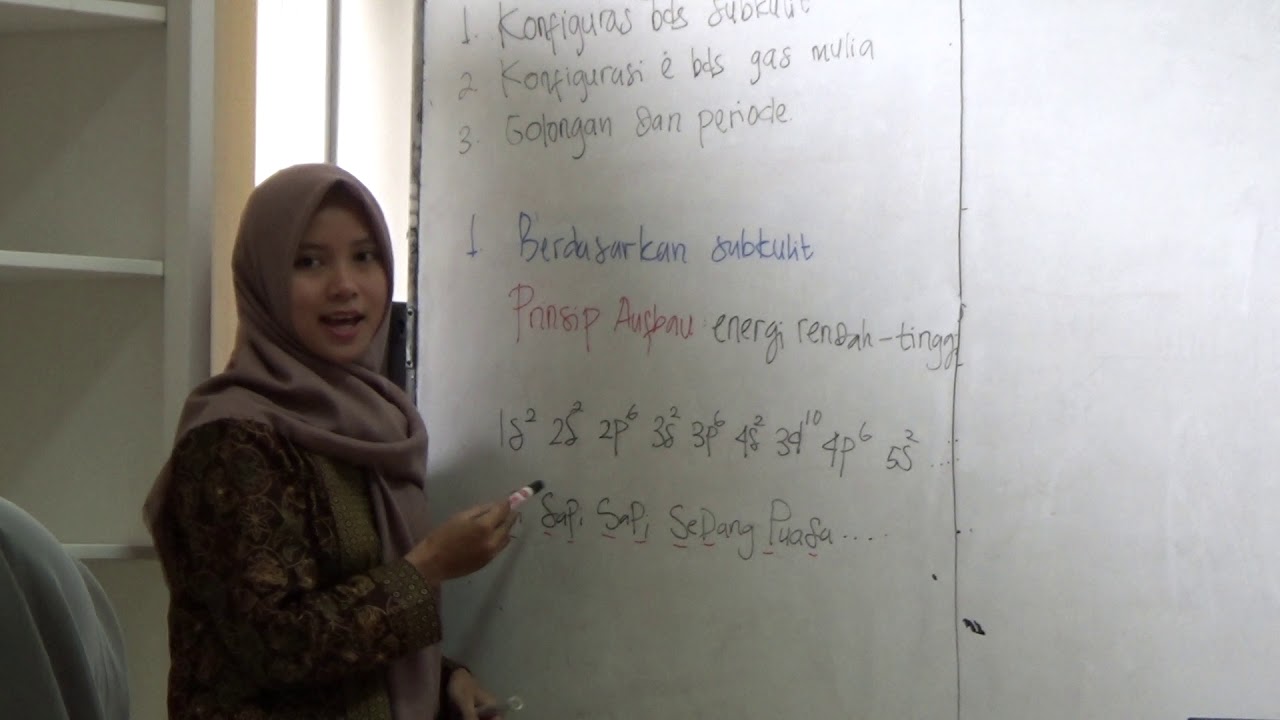 1. Konfiguras bds subkulit
2 Konfigurasi ė bds gas mulia
3. Golongan dan periode.
1 Berdasarkan subkulit
Prinsip Aufbau: energi rendah-tinggi
1s² 2s² 2p⁶ 3s² 3p⁶ 4s² 3d¹⁰ 4p⁶ 5s² ....
Sapi Sapi SeDang Puasa....